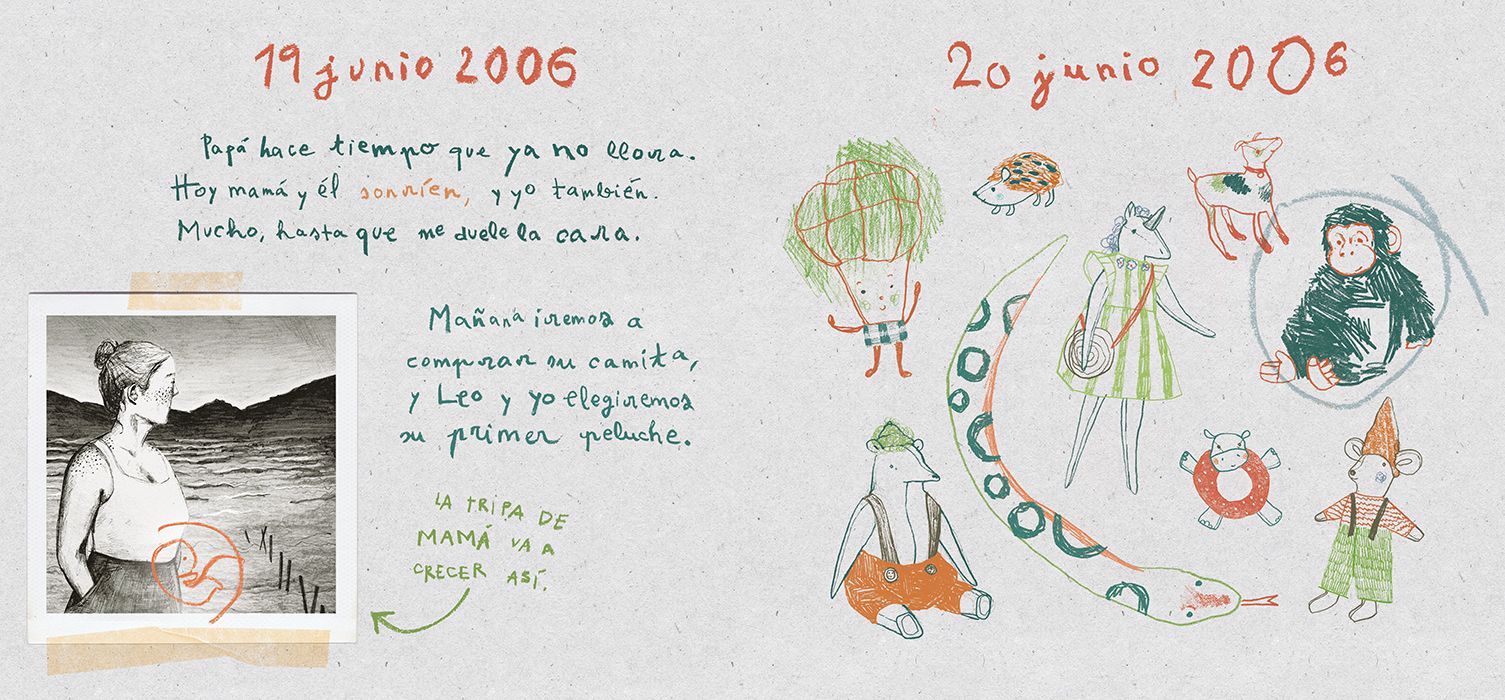 19 junio 2006
Papá hace tiempo que ya no llora.
Hoy mamá y él sonríen, y yo también.
Mucho, hasta que me duele la cara.
Mañana iremos a
comprar su camita,
y Leo y yo elegiremos
su primer peluche.
LA TRIPA DE
MAMÁ VA A
CRECER ASÍ.
20 junio 2006